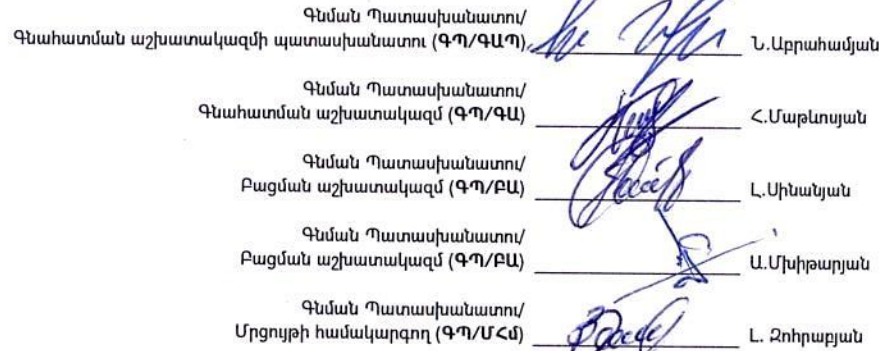 Գնման Պատասխանատու/
Գնահատման աշխատակազմի պատասխանատու (ԳՊ/ԳԱՊ) Ն.Աբրահամյան
Գնման Պատասխանատու/
Գնահատման աշխատակազմ (ԳՊ/ԳԱ) Հ.Մաթևոսյան
Գնման Պատասխանատու/
Բացման աշխատակազմ (ԳՊ/ԲԱ) Լ.Սինանյան
Գնման Պատասխանատու/
Բացման աշխատակազմ (ԳՊ/ԲԱ) Ա.Մխիթարյան
Գնման Պատասխանատու/
Մրցույթի համակարգող (ԳՊ/ՄՀմ) Լ. Զոհրաբյան